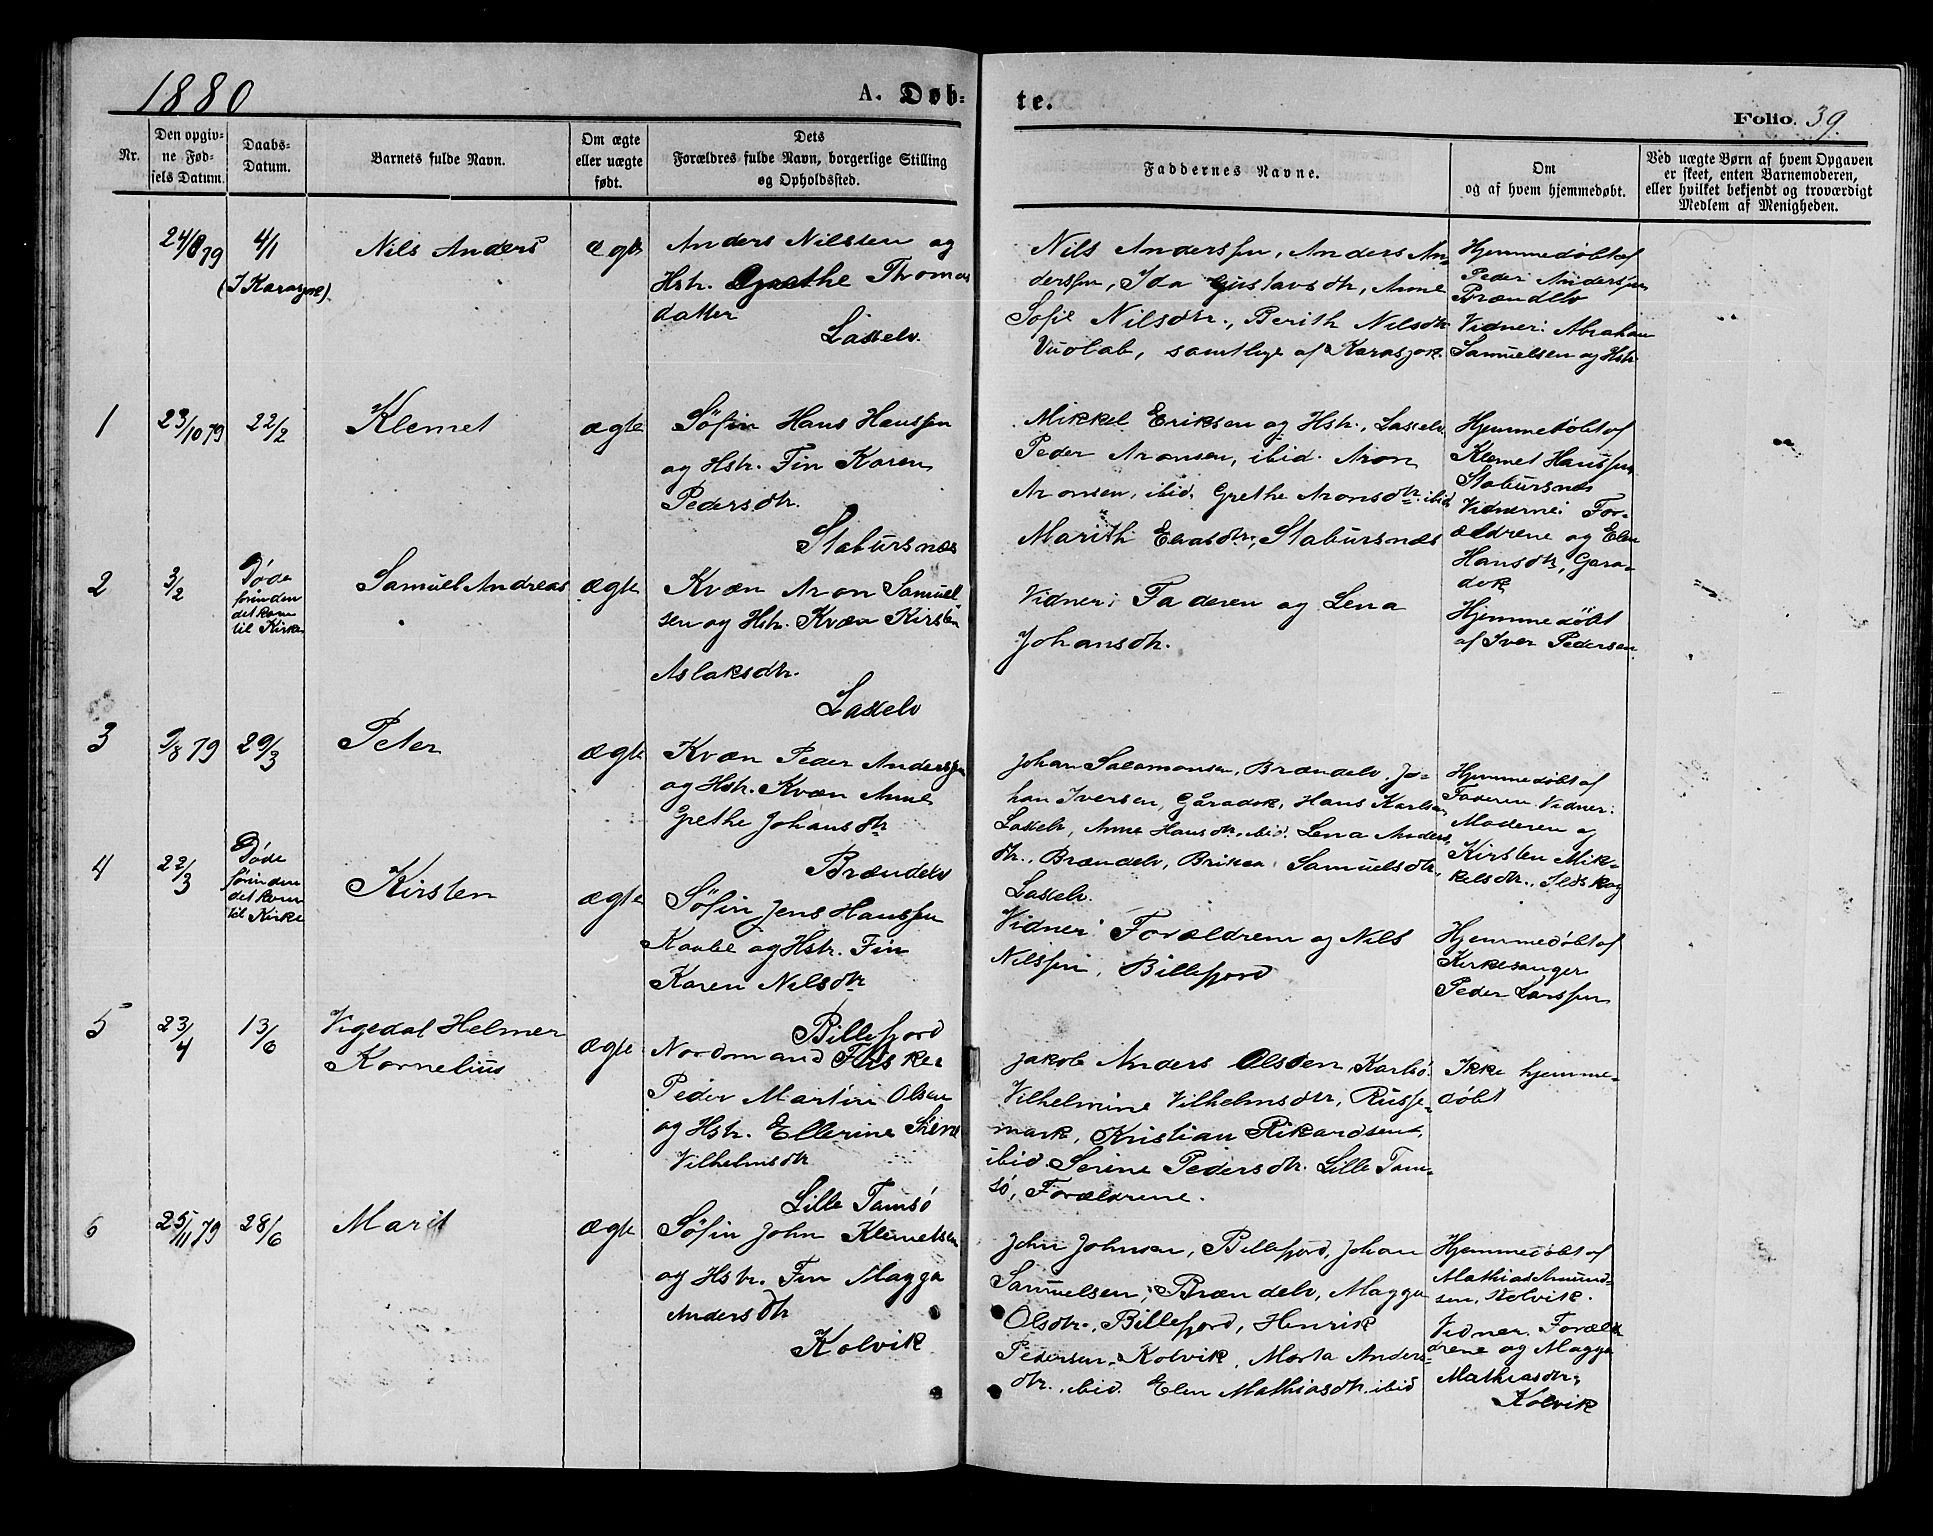 1880
A. Døb-
te.
Folio. 39.
Nr.
Den opgiv-
ne Fød-
sels Datum.
Daabs-
Datum.
Barnets fulde Navn.
Om ægte
eller uægte
født.
Dets
Forældres fulde Navn, borgerlige Stilling
og Opholdssted.
Faddernes Navne.
Om
og af hvem hjemmedøbt.
Ved uægte Børn af hvem Opgaven
er skeet, enten Barnemoderen,
eller hvilket bekjendt og troværdigt
Medlem af Menigheden.
24/8 79
4/1
(I Karasjok).
Nils Anders
ægte
Anders Nilssen og
Hstr. Grethe Thomas
datter
Laxelv.
Nils Anderssen, Anders An-
derssen, Ida Gustavsdtr, Anne
Sofie Nilsdtr., Berith Nilsdtr
Vuolab, samtlige af Karasjok.
Hjemmedøbt af
Peder Anderssen
Brændelv
Vidner: Abraham
Samuelsen og Hstr.
1
23/10 79
22/2
Klemet
ægte
Søfin Hans Hanssen
og Hstr. Fin Karen
Pedersdtr.
Stabursnæs
Mikkel Eriksen og Hstr., Laxelv
Peder Aronsen, ibid. Aron
Aronsen, ibid. Grethe Aronsdtr. ibid
Marith Eliasdtr., Stabursnæs
Hjemmedøbt af
Klemet Hanssen,
Stabursnæs
Vidnerne: For-
ældrene og Elen
Hansdtr., Gara-
dok
2
3/2
Døde
førinden
det kom
til Kirke
Samuel Andreas
ægte
Kvæn Aron Samuel-
sen og Hstr. Kvæn Kirsten
Aslaksdtr.
Laxelv
Vidner: Faderen og Lena
Johansdtr.
Hjemmedøbt
af Iver Pedersen.
3
9/8 79
29/3
Peter
ægte
Kvæn Peder Anderssen
og Hstr. Kvæn Anne
Grethe Johansdtr
Brændelv
Johan Salamonsen, Brændelv, Jo-
han Iversen, Garadok, Hans Karlsen,
Laxelv, Anne Hansdtr. ibid. Lena Anders-
dtr., Brændelv, Brikea Samuelsdtr.,
Laxelv.
Hjemmedøbt af
Faderen. Vidner:
Moderen og
Kirsten Mik-
kelsdtr., Ildskog
4
22/3
Døde
førinden
det kom
til Kirke
Kirsten
ægte
Søfin Jens Hanssen
Kaabe og Hstr. Fin
Karen Nilsdtr
Billefjord
Vidner: Forældrene og Nils
Nilssen, Billefjord
Hjemmedøbt af
Kirkesanger
Peder Larssen
5
23/4
13/6
Vigedal Helmer
Kornelius
ægte
Nordmand Fisker
Peder Martin Olsen
og Hstr. Ellerine Sirene
Vilhelmsdtr
Lille Tamsø
Jakob Anders Olsen, Karlsø.
Vilhelmine Vilhelmsdtr, Russe-
mark, Kristian Rikardsen,
ibid. Serine Pedersdtr. Lille Tam-
sø, Forældrene.
Ikke hjemme-
døbt
6
25/11 79
28/6
Marit
ægte
Søfin John Klemetsen
og Hstr. Fin Magga
Andersdtr
Kolvik
John Johnsen, Billefjord, Johan
Samuelsen, Brændelv, Magga
Olsdtr., Billefjord, Henrik
Pedersen, Kolvik, Marta Anders-
dtr., ibid. Elen Mathiasdtr. ibid
Hjemmedøbt af
Mathias Amund-
sen, Kolvik.
Vidner. Foræl-
drene og Magga
Mathiasdtr.,
Kolvik